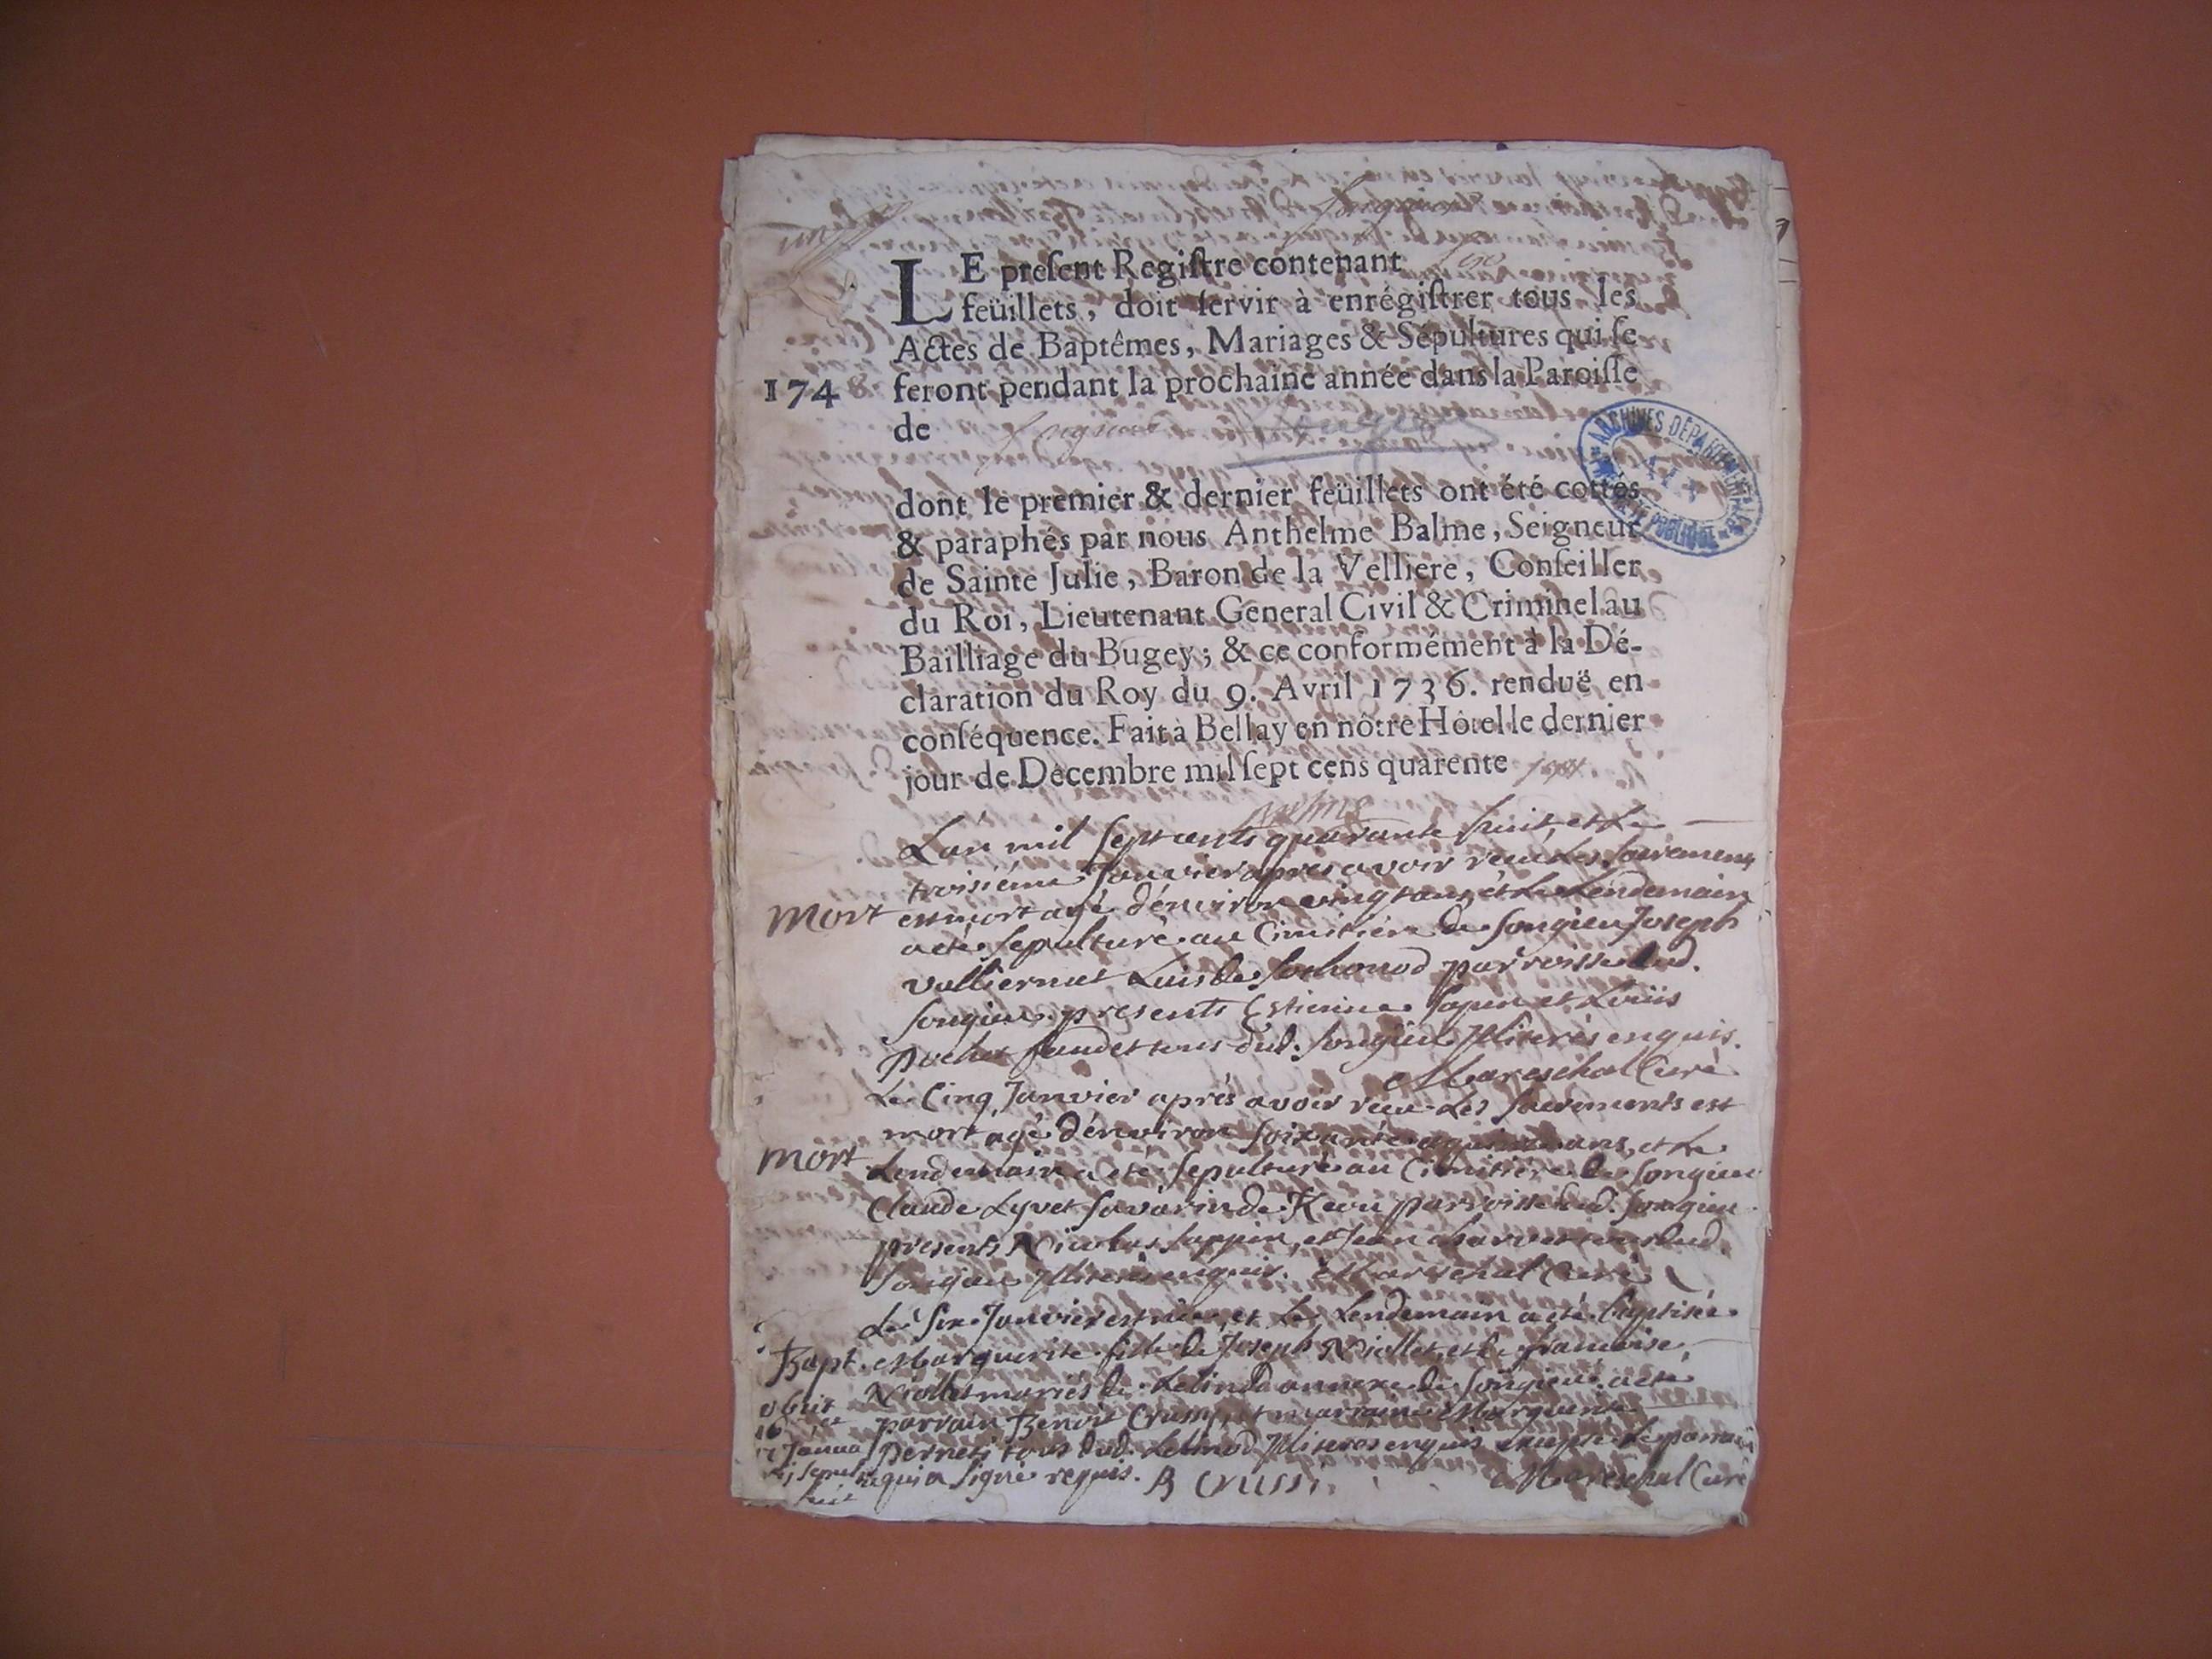 LE preſent Regiſtre contenant
feüillets, doit ſervir à enrégiſtrer tous les
Actes de Baptêmes, Mariages & Sépultures qui ſe
1748 feront pendant la prochaine année dans la Paroiſſe
de Songieu Songieu
ARCHIVES DÉPARTEMENTALES
PUBLIQUE
dont le premier & dernier feüillets ont été cottés
& paraphés par nous Anthelme Balme, Seigneur
de Sainte Julie, Baron de la Velliere, Conſeiller
du Roi, Lieutenant General Civil & Criminel au
Bailliage du Bugey; & ce conformément à la Dé-
claration du Roy du 9. Avril 1736. renduë en
conſéquence. Fait à Bellay en nôtre Hôtel le dernier
jour de Décembre mil ſept cens quarente sept
Balme
L'an mil sept cents quarante huit, et le
troisiéme Janvier apres avoir receu les sacremens
Mort est mort agé d'environ vingt ans, et le Lendemain
a eté sepulturé au Cimitiére de Songieu Joseph
vulliernet de Sothonod parroisse dud.
Songieu. presents Estienne Sapin et Loüis
pochet tous dud. Songieu Illiterés enquis.
Mareschal Curé
Le Cinq Janvier aprés avoir receu les sacrements est
mort agé d'environ soixante ans, et le
Mort Lendemain a eté sepulturé au Cimitiére de Songieu
Claude Lyvet Savarin de parroisse dud. Songieu
presents Nicolas Sappin, et Jean charvet tous dud.
Songieu Illiterés enquis. Mareschal Curé
Le Six Janvier est née, et le Lendemain a eté baptisée
Bapt. Marguerite fille de Joseph Niollet, et de francoise
Niollet mariés de annexe de Songieu. a eté
obiit parrain Benoit Crussy, et marraine Marguerite
16 et
17 Janua Perneti tous dud. Illiteres enquis excepté le parrain
sepul qui a signé requis. B Crussi Mareschal Curé